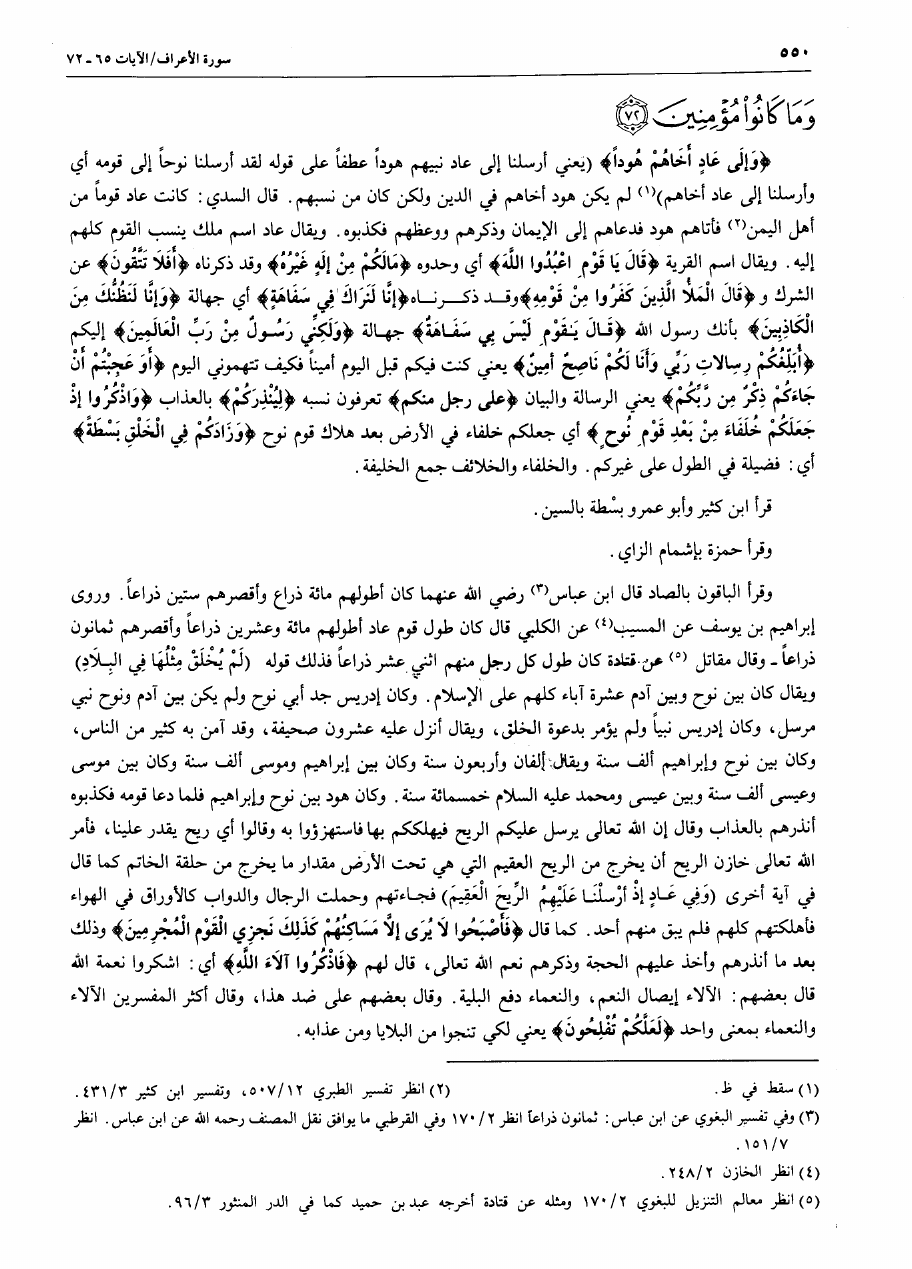 ٥٥٠
سورة الأعراف/الآيات ٦٥ ـ ٧٢
وَمَا كَانُوا۟ مُؤْمِنِينَ ٧٢
﴿وَإِلَى عَادٍ أَخَاهُمْ هُوداً﴾ (يَعني أرسلنا إلى عاد نبيهم هوداً عطفاً على قوله لقد أرسلنا نوحاً إلى قومه أي
وأرسلنا إلى عاد أخاهم)(١) لم يكن هود أخاهم في الدين ولكن كان من نسبهم. قال السدي: كانت عاد قوماً من
أهل اليمن(٢) فأتاهم هود فدعاهم إلى الإيمان وذكرهم ووعظهم فكذبوه. ويقال عاد اسم ملك ينسب القوم كلهم
إليه. ويقال اسم القرية ﴿قَالَ يَا قَوْمِ اعْبُدُوا اللَّهَ﴾ أي وحدوه ﴿مَالَكُمْ مِنْ إِلَهٍ غَيْرُهُ﴾ وقد ذكرناه ﴿أَفَلَا تَتَّقُونَ﴾ عن
الشرك و﴿قَالَ الْمَلأُ الَّذِينَ كَفَرُوا مِنْ قَوْمِهِ﴾وقـد ذكـرنـاه﴿إِنَّا لَنَرَاكَ فِي سَفَاهَةٍ﴾ أي جهالة ﴿وَإِنَّا لَنَظُنُّكَ مِنَ
الْكَاذِبِينَ﴾ بأنك رسول الله ﴿قَـالَ يَـٰقَوْمِ لَيْسَ بِي سَفَـاهَةٌ﴾ جهـالة ﴿وَلَكِنِّي رَسُـولٌ مِنْ رَبِّ الْعَالَمِينَ﴾ إليكم
﴿أُبَلِّغُكُمْ رِسالاتِ رَبِّي وَأَنَا لَكُمْ نَاصِحٌ أَمِينٌ﴾ يعني كنت فيكم قبل اليوم أميناً فكيف تتهموني اليوم ﴿أَوَ عَجِبْتُمْ أَنْ
جَاءَكُمْ ذِكْرٌ مِن رَّبِّكُمْ﴾ يعني الرسالة والبيان ﴿على رجل منكم﴾ تعرفون نسبه ﴿لِيُنْذِرَكُمْ﴾ بالعذاب ﴿وَاذْكُرُوا إِذْ
جَعَلَكُمْ خُلَفَاءَ مِنْ بَعْدِ قَوْمِ نُوحٍ﴾ أي جعلكم خلفاء في الأرض بعد هلاك قوم نوح ﴿وَزَادَكُمْ فِي الْخَلْقِ بَسْطَةً﴾
أي: فضيلة في الطول على غيركم. والخلفاء والخلائف جمع الخليفة.
قرأ ابن كثير وأبو عمرو بسْطة بالسين.
وقرأ حمزة بإشمام الزاي.
وقرأ الباقون بالصاد قال ابن عباس(٣) رضي الله عنهما كان أطولهم مائة ذراع وأقصرهم ستين ذراعاً. وروى
إبراهيم بن يوسف عن المسيب(٤) عن الكلبي قال كان طول قوم عاد أطولهم مائة وعشرين ذراعاً وأقصرهم ثمانون
ذراعاً ـ وقال مقاتل (٥) عن قتادة كان طول كل رجل منهم اثني عشر ذراعاً فذلك قوله (لَمْ يُخْلَقْ مِثْلُهَا فِي البِـلَادِ)
ويقال كان بين نوح وبين آدم عشرة آباء كلهم على الإسلام. وكان إدريس جد أبي نوح ولم يكن بين آدم ونوح نبي
مرسل، وكان إدريس نبياً ولم يؤمر بدعوة الخلق، ويقال أنزل عليه عشرون صحيفة، وقد آمن به كثير من الناس،
وكان بين نوح وإبراهيم ألف سنة ويقال ألفان وأربعون سنة وكان بين إبراهيم وموسى ألف سنة وكان بين موسى
وعيسى ألف سنة وبين عيسى ومحمد عليه السلام خمسمائة سنة. وكان هود بين نوح وإبراهيم فلما دعا قومه فكذبوه
أنذرهم بالعذاب وقال إن الله تعالى يرسل عليكم الريح فيهلككم بها فاستهزؤوا به وقالوا أي ريح يقدر علينا، فأمر
الله تعالى خازن الريح أن يخرج من الريح العقيم التي هي تحت الأرض مقدار ما يخرج من حلقة الخاتم كما قال
في آية أخرى (وَفِي عَـادٍ إِذْ أَرْسَلْنَـا عَلَيْهِمُ الرِّيحَ الْعَقِيمَ) فجـاءتهم وحملت الرجال والدواب كالأوراق في الهواء
فأهلكتهم كلهم فلم يبق منهم أحد. كما قال ﴿فَأَصْبَحُوا لَا يُرَى إِلَّا مَسَاكِنُهُمْ كَذَلِكَ نَجزِي الْقَوْم الْمُجْرِمِينَ﴾ وذلك
بعد ما أنذرهم وأخذ عليهم الحجة وذكرهم نعم الله تعالى، قال لهم ﴿فَاذْكُرُوا آلَاءَ اللَّهِ﴾ أي: اشكروا نعمة الله
قال بعضهم: الآلاء إيصال النعم، والنعماء دفع البلية. وقال بعضهم على ضد هذا، وقال أكثر المفسرين الآلاء
والنعماء بمعنى واحد ﴿لَعَلَّكُمْ تُفْلِحُونَ﴾ يعني لكي تنجوا من البلايا ومن عذابه.
(١) سقط في ظ.
(٢) انظر تفسير الطبري ٥٠٧/١٢، وتفسير ابن كثير ٤٣١/٣.
(٣) وفي تفسير البغوي عن ابن عباس: ثمانون ذراعاً انظر ١٧٠/٢ وفي القرطبي ما يوافق نقل المصنف رحمه الله عن ابن عباس. انظر
١٥١/٧.
(٤) انظر الخازن ٢٤٨/٢.
(٥) انظر معالم التنزيل للبغوي ١٧٠/٢ ومثله عن قتادة أخرجه عبد بن حميد كما في الدر المنثور ٩٦/٣.